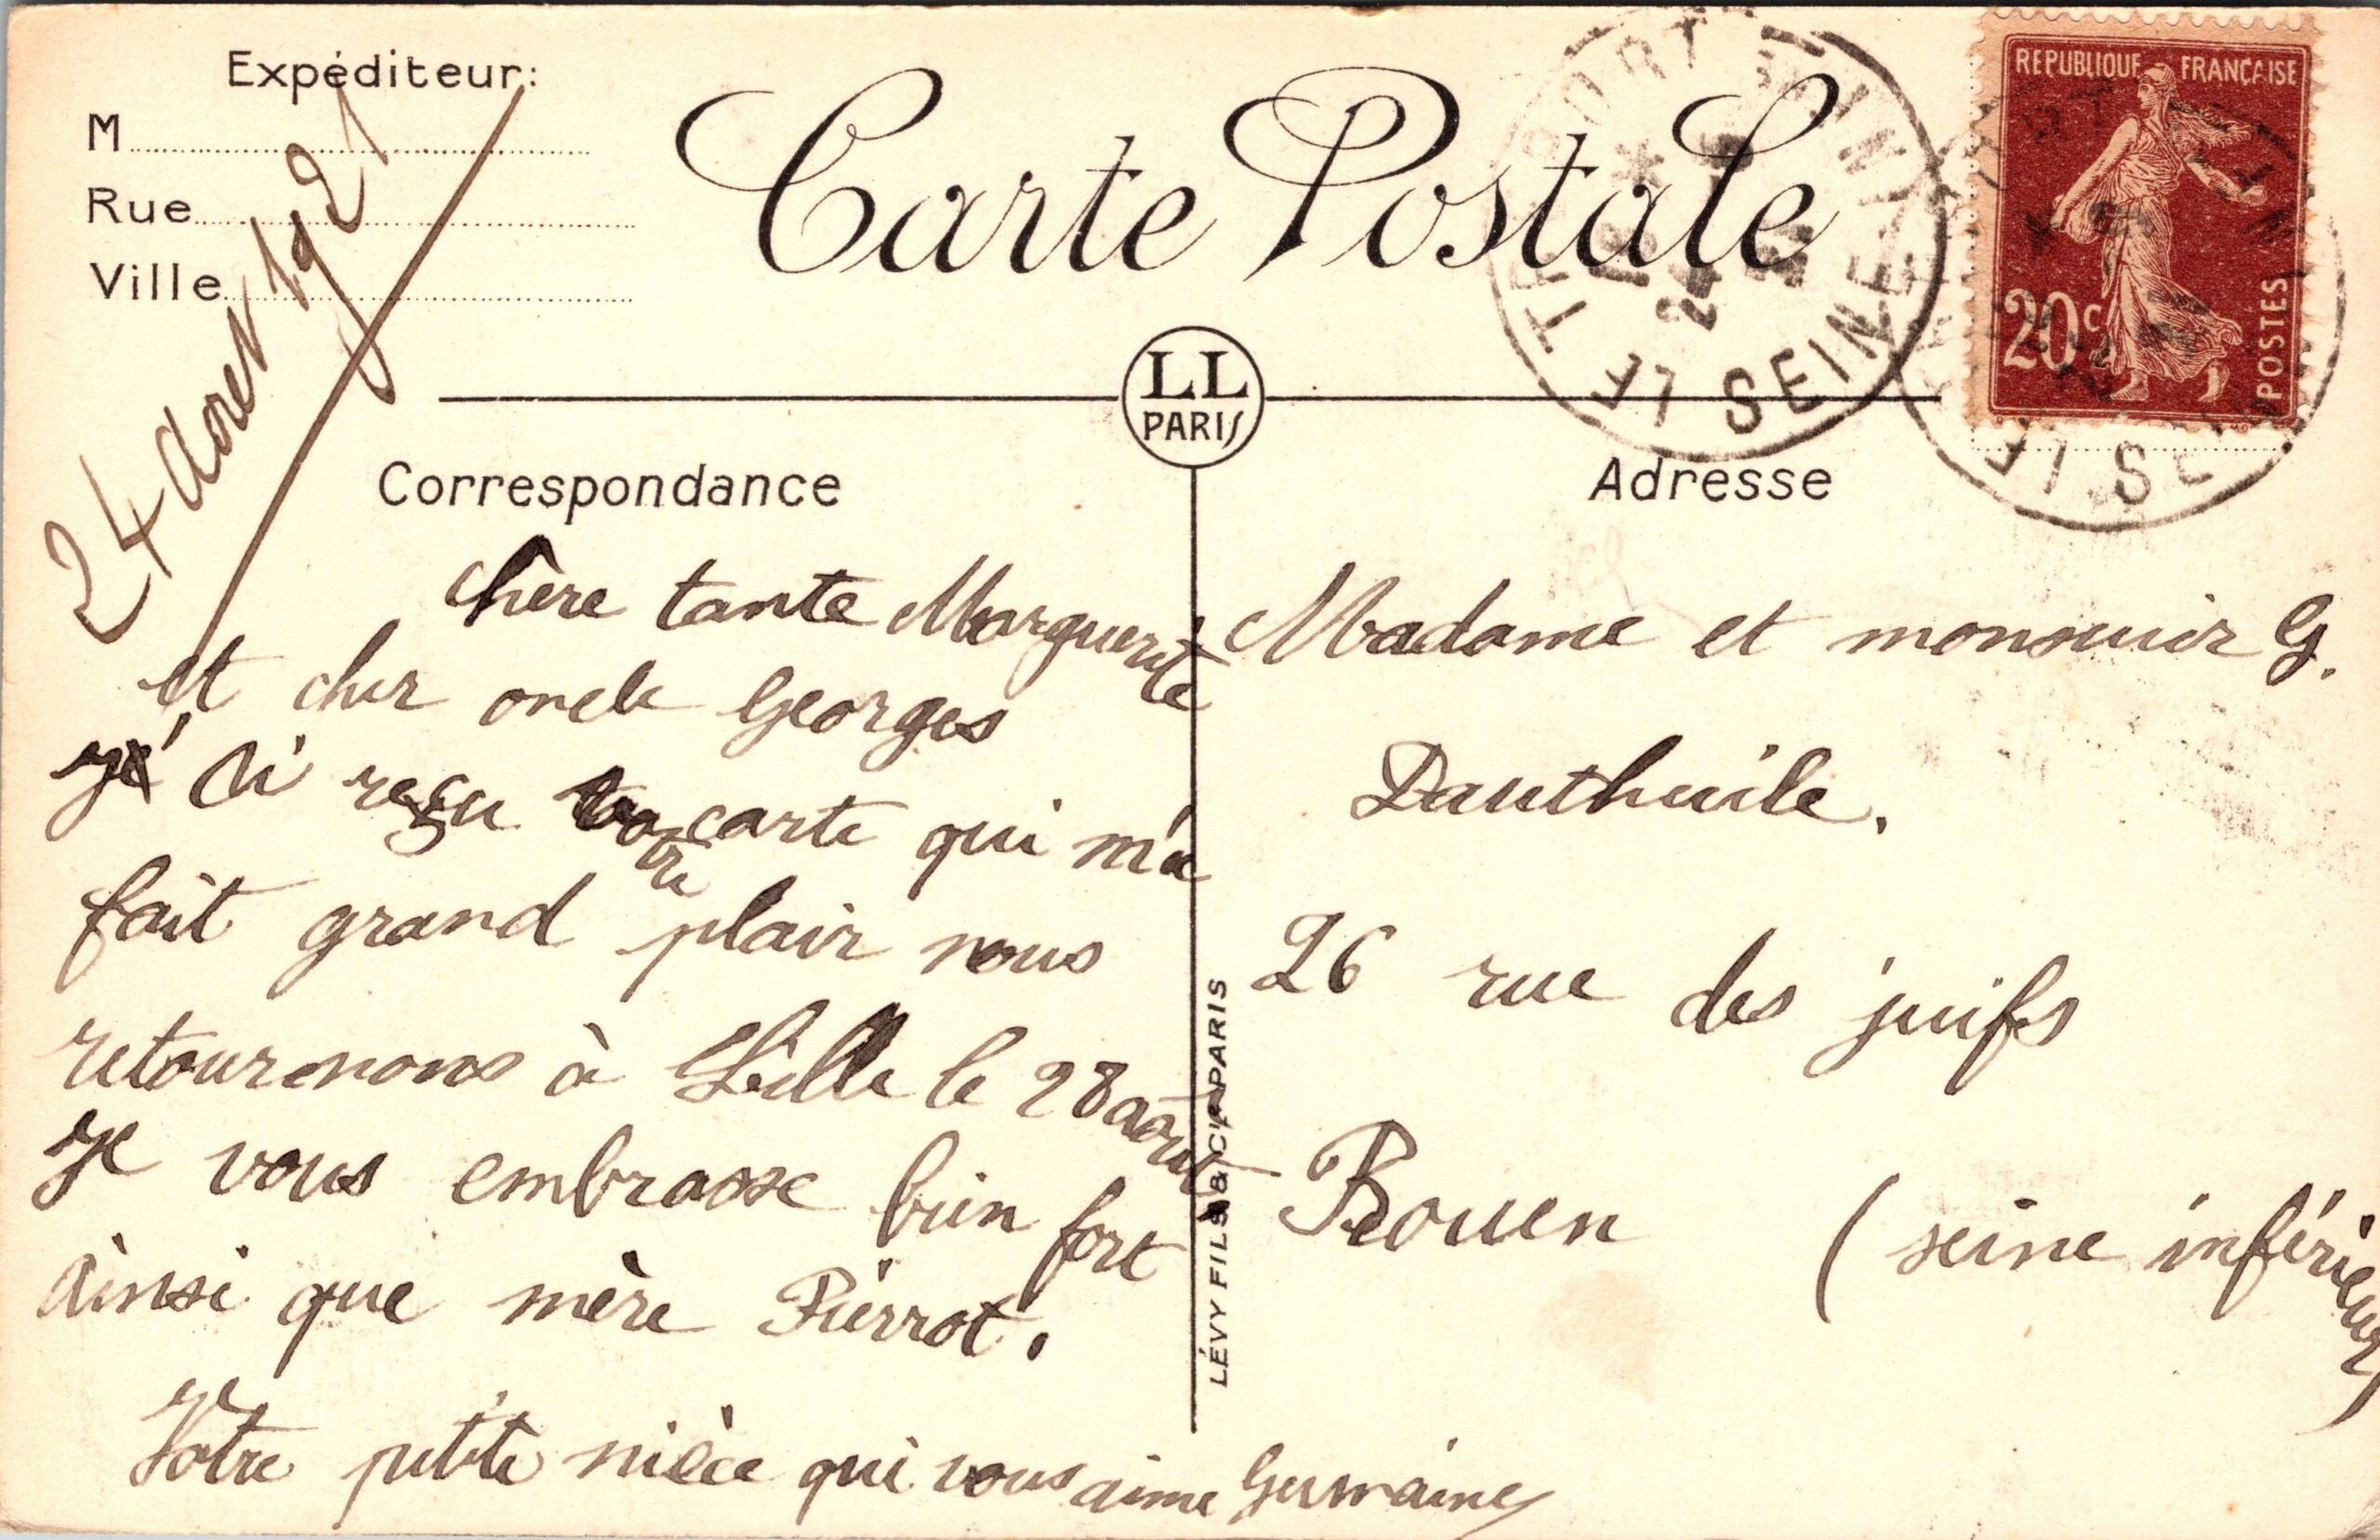 Expéditeur:
M
Rue
Ville
24 Aout 1921
Carte Postale
REPUBLIQUE FRANÇAISE
20c
POSTES
LL
PARIS
TRÉPORT
24
SEINE INF
Correspondance
chere tante Marguerite
et cher oncle Georges
j'ai reçu votre carte qui m'a
fait grand plair nous
retournons à Lille le 28 aout
je vous embrasse bien fort
ainsi que mère Pierrot.
Votre petite nièce qui vous aime Germaine
LÉVY FILS & CIE PARIS
Adresse
Madame et monsieur G.
Dauthuile.
26 rue des juifs
Rouen (seine inférieur)